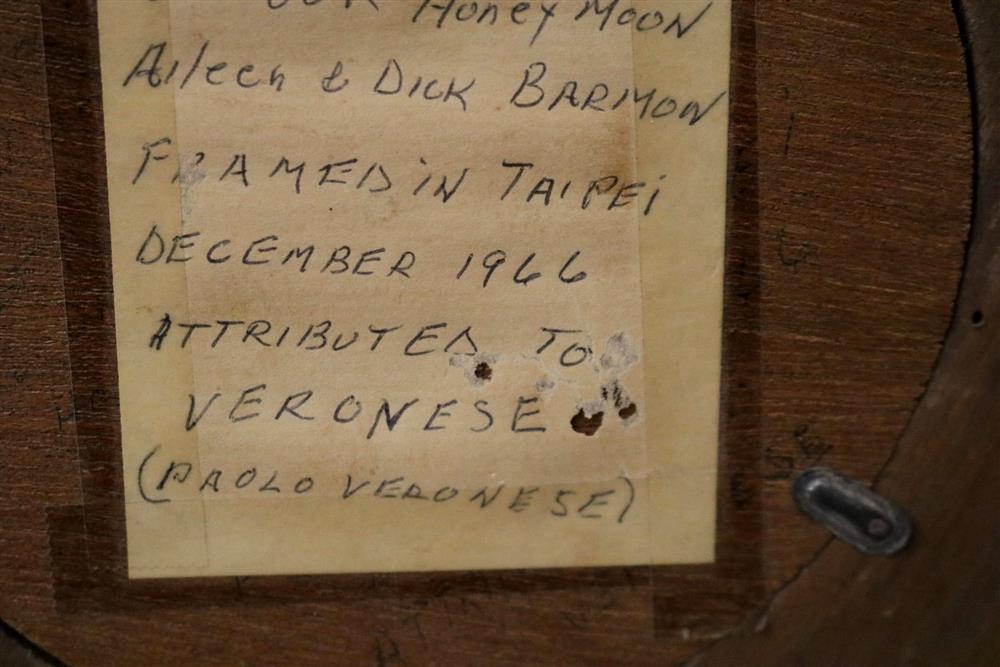 OUR Honey Moon
Aileen & DICK BARMON
FRAMED iN TAIPEi
DECEMBER 1966
ATTRIBUTED TO
VERONESE
(PAOLO VERONESE)